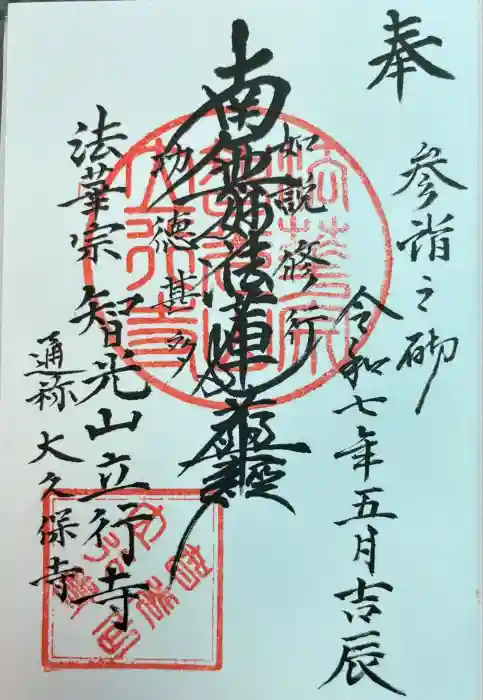 奉
参詣之砌
令和七年五月吉辰
如説修行
南無妙法蓮華経
功徳甚多
法華宗 智光山立行寺
通称 大久保寺